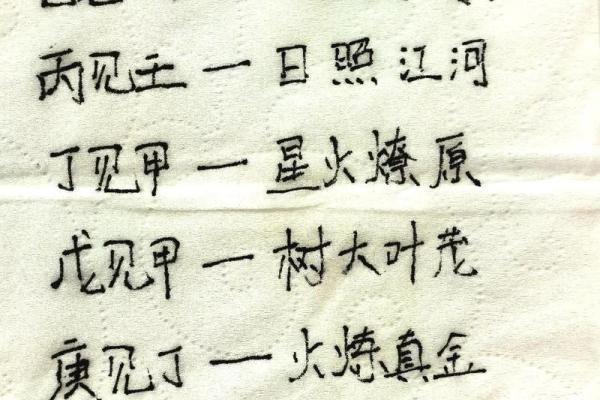 丙见壬一日照江河
丁见甲一星火燎原
戊见甲一树大叶茂
庚见丁一火炼真金